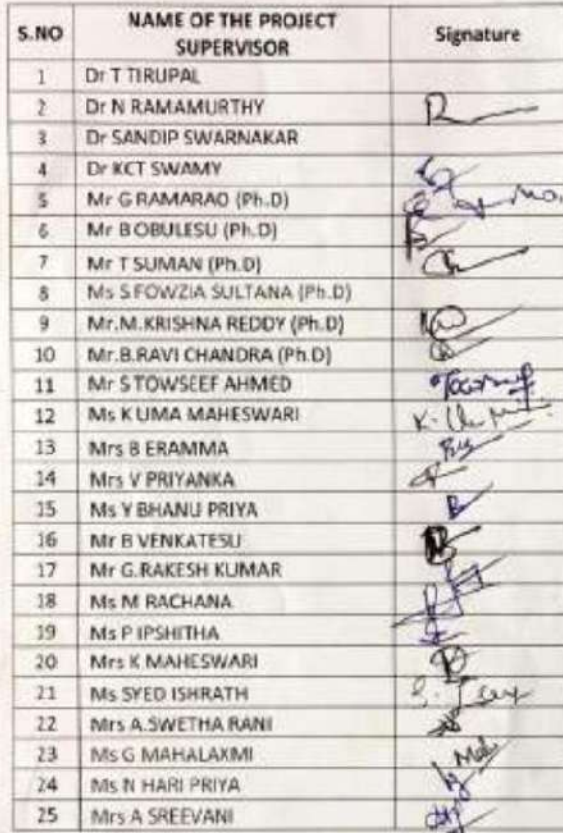 S.NO NAME OF THE PROJECT SUPERVISOR Signature
1 Dr T TIRUPAL
2 Dr N RAMAMURTHY
3 Dr SANDIP SWARNAKAR
4 Dr KCT SWAMY
5 Mr G RAMARAO (Ph.D)
6 Mr B OBULESU (Ph.D)
7 Mr T SUMAN (Ph.D)
8 Ms S FOWZIA SULTANA (Ph.D)
9 Mr.M.KRISHNA REDDY (Ph.D)
10 Mr.B.RAVI CHANDRA (Ph.D)
11 Mr S TOWSEEF AHMED
12 Ms K UMA MAHESWARI
13 Mrs B ERAMMA
14 Mrs V PRIYANKA
15 Ms Y BHANU PRIYA
16 Mr B VENKATESU
17 Mr G.RAKESH KUMAR
18 Ms M RACHANA
19 Ms P IPSHITHA
20 Mrs K MAHESWARI
21 Ms SYED ISHRATH
22 Mrs A.SWETHA RANI
23 Ms G MAHALAXMI
24 Ms N HARI PRIYA
25 Mrs A SREEVANI